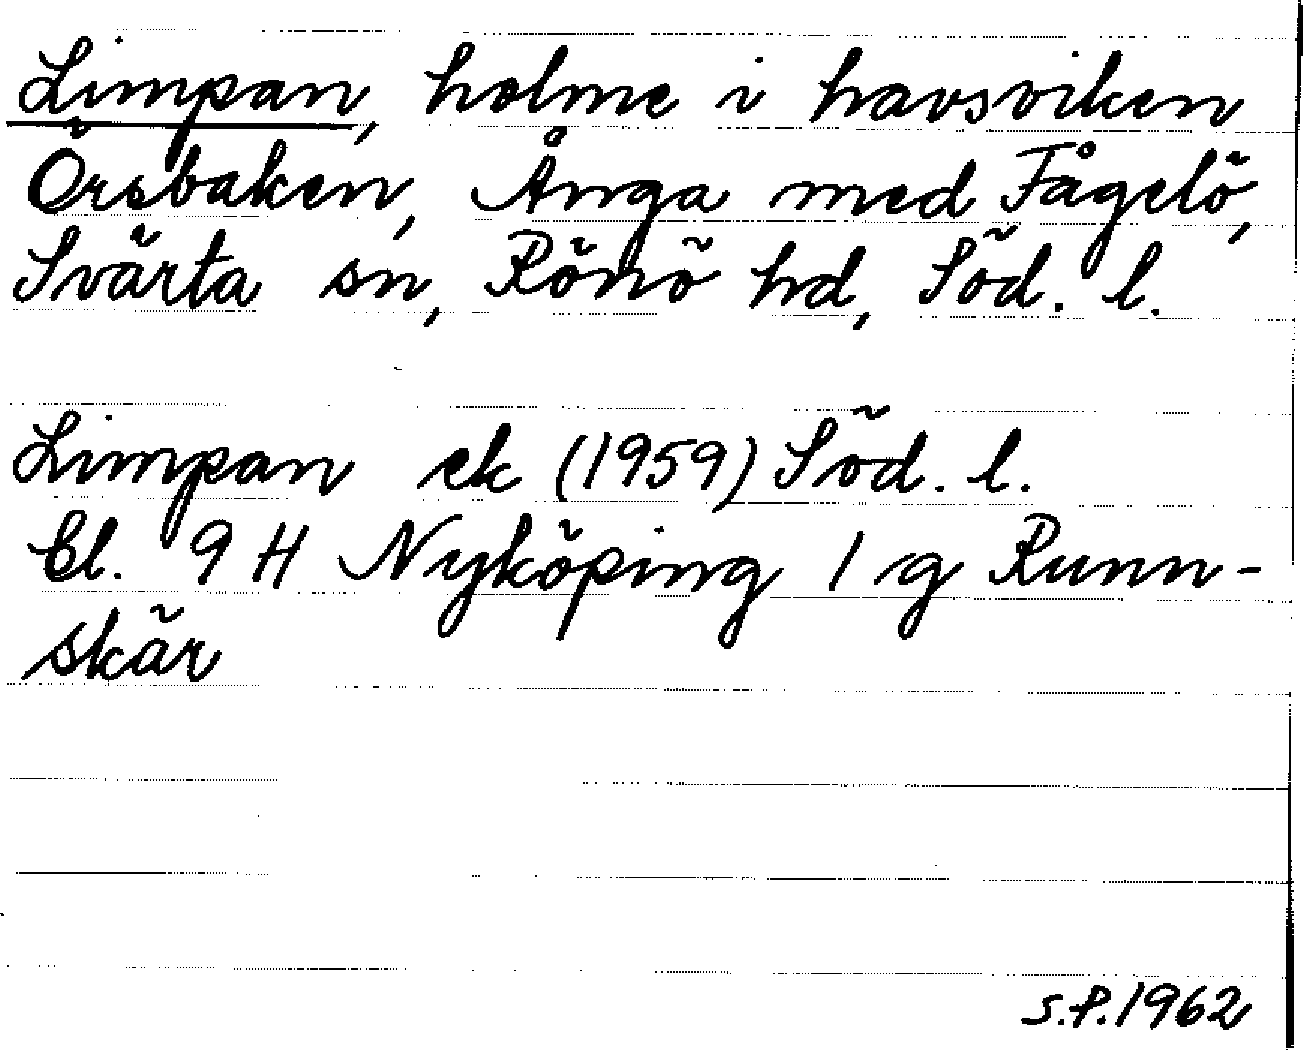 Limpan, holme i havsviken
Örsbaken, Ånga med Fågelö,
Svärta sn, Rönö hd, Söd. l.
Limpan ek (1959) Söd. l.
Bl. 9 H Nyköping 1 g Runn-
skär
S.P. 1962